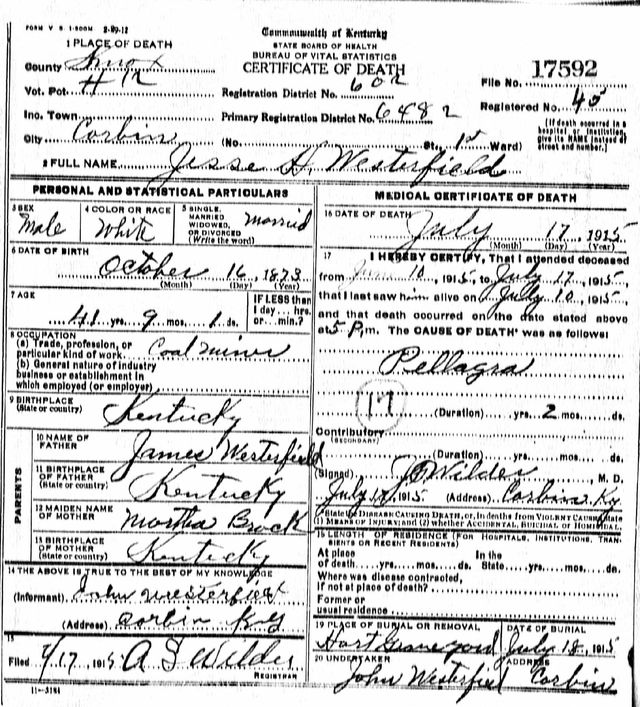 FORM V. S. 1-500M 2-29-12
Commonwealth of Kentucky
STATE BOARD OF HEALTH
BUREAU OF VITAL STATISTICS
CERTIFICATE OF DEATH
1 PLACE OF DEATH
County Knox
Vot. Pct. # 12
Registration District No. 602
File No. 17592
Inc. Town
Primary Registration District No. 6482
Registered No. 45
City Corbin (No. St., 1st Ward)
[If death occurred in a hospital or institution, give its NAME instead of street and number.]
2 FULL NAME Jesse H. Westerfield
PERSONAL AND STATISTICAL PARTICULARS
3 SEX Male
4 COLOR OR RACE White
5 SINGLE, MARRIED WIDOWED, OR DIVORCED (Write the word) Married
6 DATE OF BIRTH
October 16 1873
(Month) (Day) (Year)
7 AGE
41 yrs. 9 mos. 1 ds.
IF LESS than 1 day... hrs. or min.?
8 OCCUPATION
(a) Trade, profession, or particular kind of work Coal miner
(b) General nature of industry business or establishment in which employed (or employer)
9 BIRTHPLACE (State or country) Kentucky
PARENTS
10 NAME OF FATHER James Westerfield
11 BIRTHPLACE OF FATHER (State or country) Kentucky
12 MAIDEN NAME OF MOTHER Martha Brock
13 BIRTHPLACE OF MOTHER (State or country) Kentucky
14 THE ABOVE IS TRUE TO THE BEST OF MY KNOWLEDGE
(Informant) John Westerfield
(Address) Corbin Ky
15
Filed 7/17 1915 A S Wilder
REGISTRAR
11-3184
MEDICAL CERTIFICATE OF DEATH
16 DATE OF DEATH
July 17 1915
(Month) (Day) (Year)
17 I HEREBY CERTIFY, That I attended deceased
from June 10, 1915, to July 17, 1915,
that I last saw him alive on July 10, 1915,
and that death occurred on the date stated above
at 5 P.m. The CAUSE OF DEATH was as follows:
Pellagra
17
(Duration) yrs. 2 mos. ds.
Contributory
(SECONDARY)
(Duration) yrs. mos. ds.
(Signed) Wilder M. D.
July 1915 (Address) Corbin Ky.
State the DISEASE CAUSING DEATH, or, in deaths from VIOLENT CAUSES, state (1) MEANS OF INJURY; and (2) whether ACCIDENTAL, SUICIDAL or HOMICIDAL
18 LENGTH OF RESIDENCE (FOR HOSPITALS, INSTITUTIONS, TRANSIENTS OR RECENT RESIDENTS)
At place of death yrs. mos. ds. In the State yrs. mos. ds.
Where was disease contracted, if not at place of death?
Former or usual residence
19 PLACE OF BURIAL OR REMOVAL Hart Graveyard
DATE OF BURIAL July 18, 1915
20 UNDERTAKER John Westerfield
ADDRESS Corbin